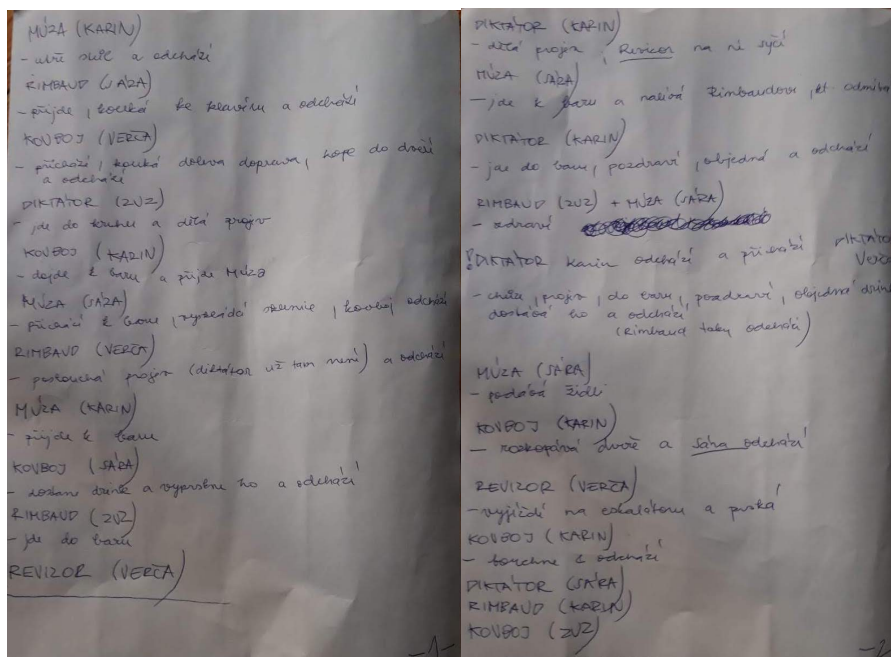 MÚZA (KARIN)
- utře stůl a odchází
RIMBAUD (SÁZA)
- přijde, kouká ke klavíru a odchází
KOVBOJ (VERČA)
- přichází, kouká doleva doprava, kope do dveří
a odchází
DIKTÁTOR (ZUZ)
- jde do kruhu a dělá projev
KOVBOJ (KARIN)
- dojde k baru a přijde MÚZA
MÚZA (SÁZA)
- přichází k baru, vyskládá sklenice, kovboj odchází
RIMBAUD (VERČA)
- poslouchá projev (diktátor už tam není) a odchází
MÚZA (KARIN)
- přijde k baru
KOVBOJ (SÁRA)
- dostane drink a vyprskne ho a odchází
RIMBAUD (ZUZ)
- jde do baru
REVIZOR (VERČA)
-1-
DIKTÁTOR (KARIN)
- dělá projev, Revizor na ní syčí
MÚZA (SÁRA)
- jde k baru a nalívá Rimbaudovi, kt odmítá
DIKTÁTOR (KARIN)
- jde do baru, pozdraví, objedná a odchází
RIMBAUD (ZUZ) + MÚZA (SÁRA)
- zdraví
! DIKTÁTOR Karin odchází a přichází DIKTÁTOR
Verča
- chůze, projev, do baru, pozdraví, objedná drink
dostává ho a odchází
(Rimbaud taky odchází)
MÚZA (SÁRA)
- podává židli
KOVBOJ (KARIN)
- rozkopává dveře a Sára odchází
REVIZOR (VERČA)
- vyjíždí na eskalátoru a prská
KOVBOJ (KARIN)
- bouchne a odchází
DIKTÁTOR (SÁRA)
RIMBAUD (KARIN)
KOVBOJ (ZUZ)